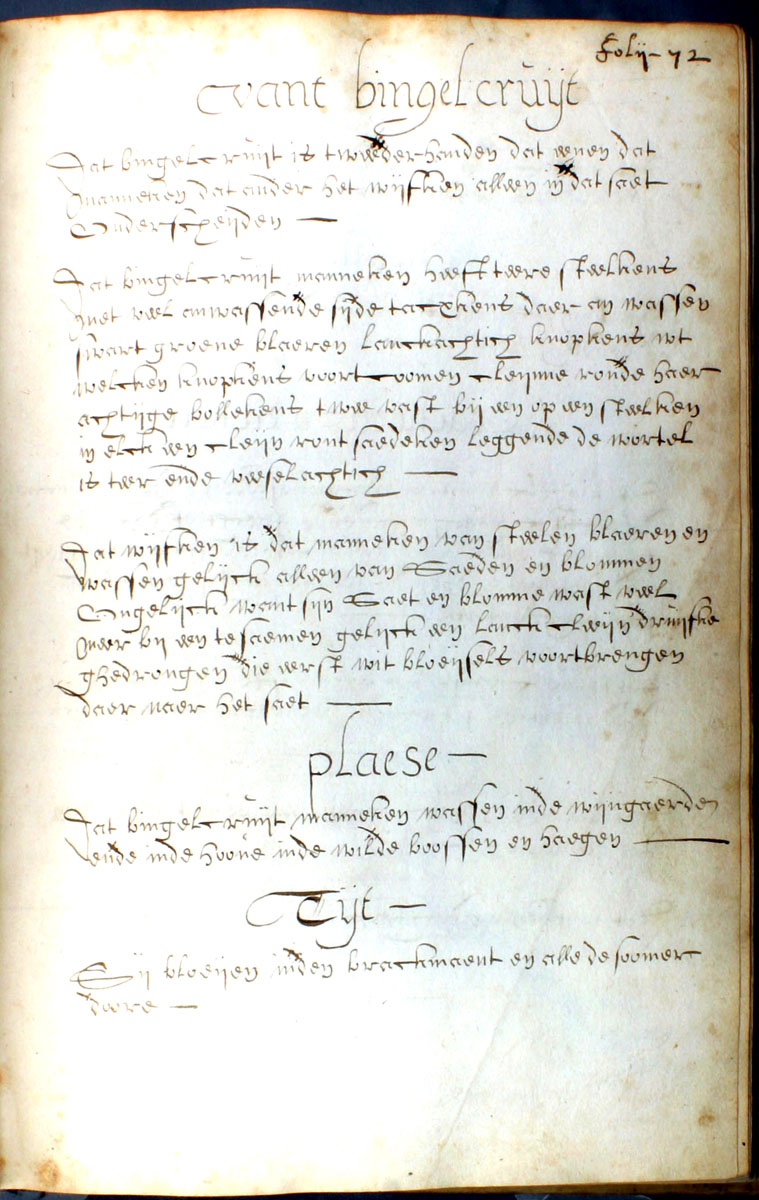 Folij 72
Vant bingelcruijt
Dat bingelcruijt is tweederhanden dat eenen dat
manneken dat ander het wijfken alleen in dat saet
Onderscheijden
Dat bingelcruijt manneken heeft teere steelkens
met veel anwassende sijde tacxkens daer an wassen
swart groene blaeren lanckachtich knopkens wt
welcken knopkens voortcoomen cleijnne ronde haer
achtijge bollekens twee vast bij een op een steelken
in elck een cleijn ront saedeken leggende de wortel
is teer ende veeselachtich
Dat wijfken is dat manneken van steelen blaeren en
wassen gelijck alleen van Saeden en blommen
Ongelijck want sijn Saet en blomme wast veel
meer bij een te saemen gelijck een lanck cleijn druijfke
ghedrongen die eerst wit bloeijsels voortbrengen
daer naer het saet
plaese
Dat bingelcruijt manneken wassen inde wijngaerde
ende inde hoove inde wilde boossen en haegen
Tijt
Sij bloeijen inden brackmaent en alle de soomer
doore